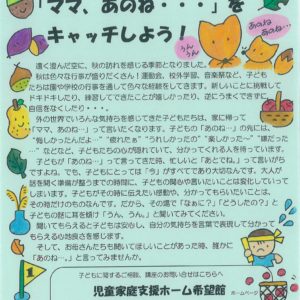 「ママ、あのね・・・」を
キャッチしよう！
うんうん
あのね
あのね…
遠く澄んだ空に、秋の訪れを感じる季節となりました。
秋は色々な行事が盛りだくさん！運動会、校外学習、音楽祭など、子ども
たちは園や学校の行事を通して色々な経験をしてきます。新しいことに挑戦して
ドキドキしたり、練習してできたことが嬉しかったり、逆にうまくできずに
自信をなくしたり・・・
外の世界でいろんな気持ちを感じてきた子どもたちは、家に帰って
「ママ、あのね…」って言いたくなります。子どもの「あのね…」の先には、
“悔しかったんだよ…”“疲れたぁ”“うれしかったの”“楽しかったの～”“嫌だった
のなどなど、子どもたちの心が隠れていて、分かってくれる人を待っています。
子どもが「あのね…」って言ってきた時、忙しいと「あとでね」って言いがち
ですよね。でも、子どもにとっては「今」がすべてであり大切なんです。大人が
話を聞く準備が整うまでの時間に、子どもの関心や言いたいことは変化していって
しまいます。子どもがその時に伝えたい感動や、分かってもらいたいことは、
その時だけのものなんです。だから、その場で「なぁに？」「どうしたの？」と
子どもの話に耳を傾け「うん、うん。」と聞いてみてください。
聞いてもらえると子どもは安心し、自分の気持ちを言葉で表現して分かって
もらえる心地良さを感じます。
そして、お母さんたちも聞いてほしいことがあった時、誰かに
「あのね…。」と言ってみませんか。
子どもに関するご相談、講座のお問い合せはこちらへ
児童家庭支援ホーム希望館
ホームページ
1